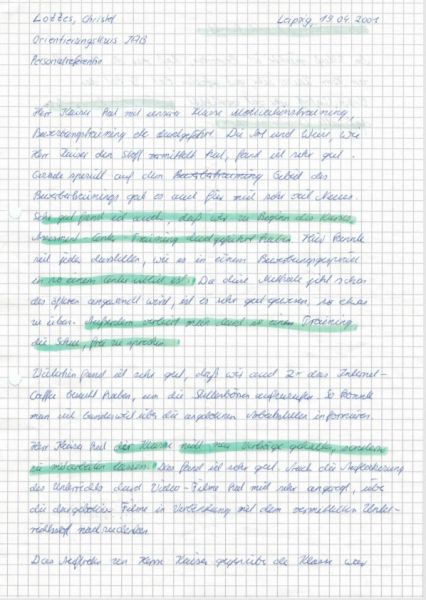 Lottes, Christof Leipzig, 19.04.2001
Orientierungskurs IAB
Personalreferentin
Herr Kaiser hat mit unserer Klasse Motivationstraining,
Bewerbungstraining etc. durchgeführt. Die Art und Weise, wie
Herr Kaiser den Stoff vermittelt hat, fand ich sehr gut.
Gerade speziell auf dem Gebiet des
Bewerbertrainings gab es auch für mich sehr viel Neues.
Sehr gut fand ich auch, daß wir zu Beginn des Kurses
Assessment Center Training durchgeführt haben. Hier konnte
sich jeder darstellen, wie es in einem Bewerbungsgespräch
in so einem Center üblich ist. Da diese Methode jetzt schon
des öfteren angewandt wird, ist es sehr gut gewesen, so etwas
zu üben. Außerdem verliert man durch so einen Training
die Scheu, frei zu sprechen.
Weiterhin fand ich sehr gut, daß wir auch 2x das Internet-
Caffee besucht haben, um die Stellenbörsen aufzurufen. So konnte
man sich bundesweit über die angebotenen Arbeitsstellen informieren.
Herr Kaiser hat der Klasse nicht nur Vorträge gehalten, sondern
sie mitarbeiten lassen. Das fand ich sehr gut. Auch die Auflockerung
des Unterrichts durch Video-Filme hat mich sehr angeregt, über
die dargebotenen Filme in Verbindung mit dem vermittelten Unter-
richtsstoff nachzudenken.
Das Auftreten von Herrn Kaiser gegenüber der Klasse war